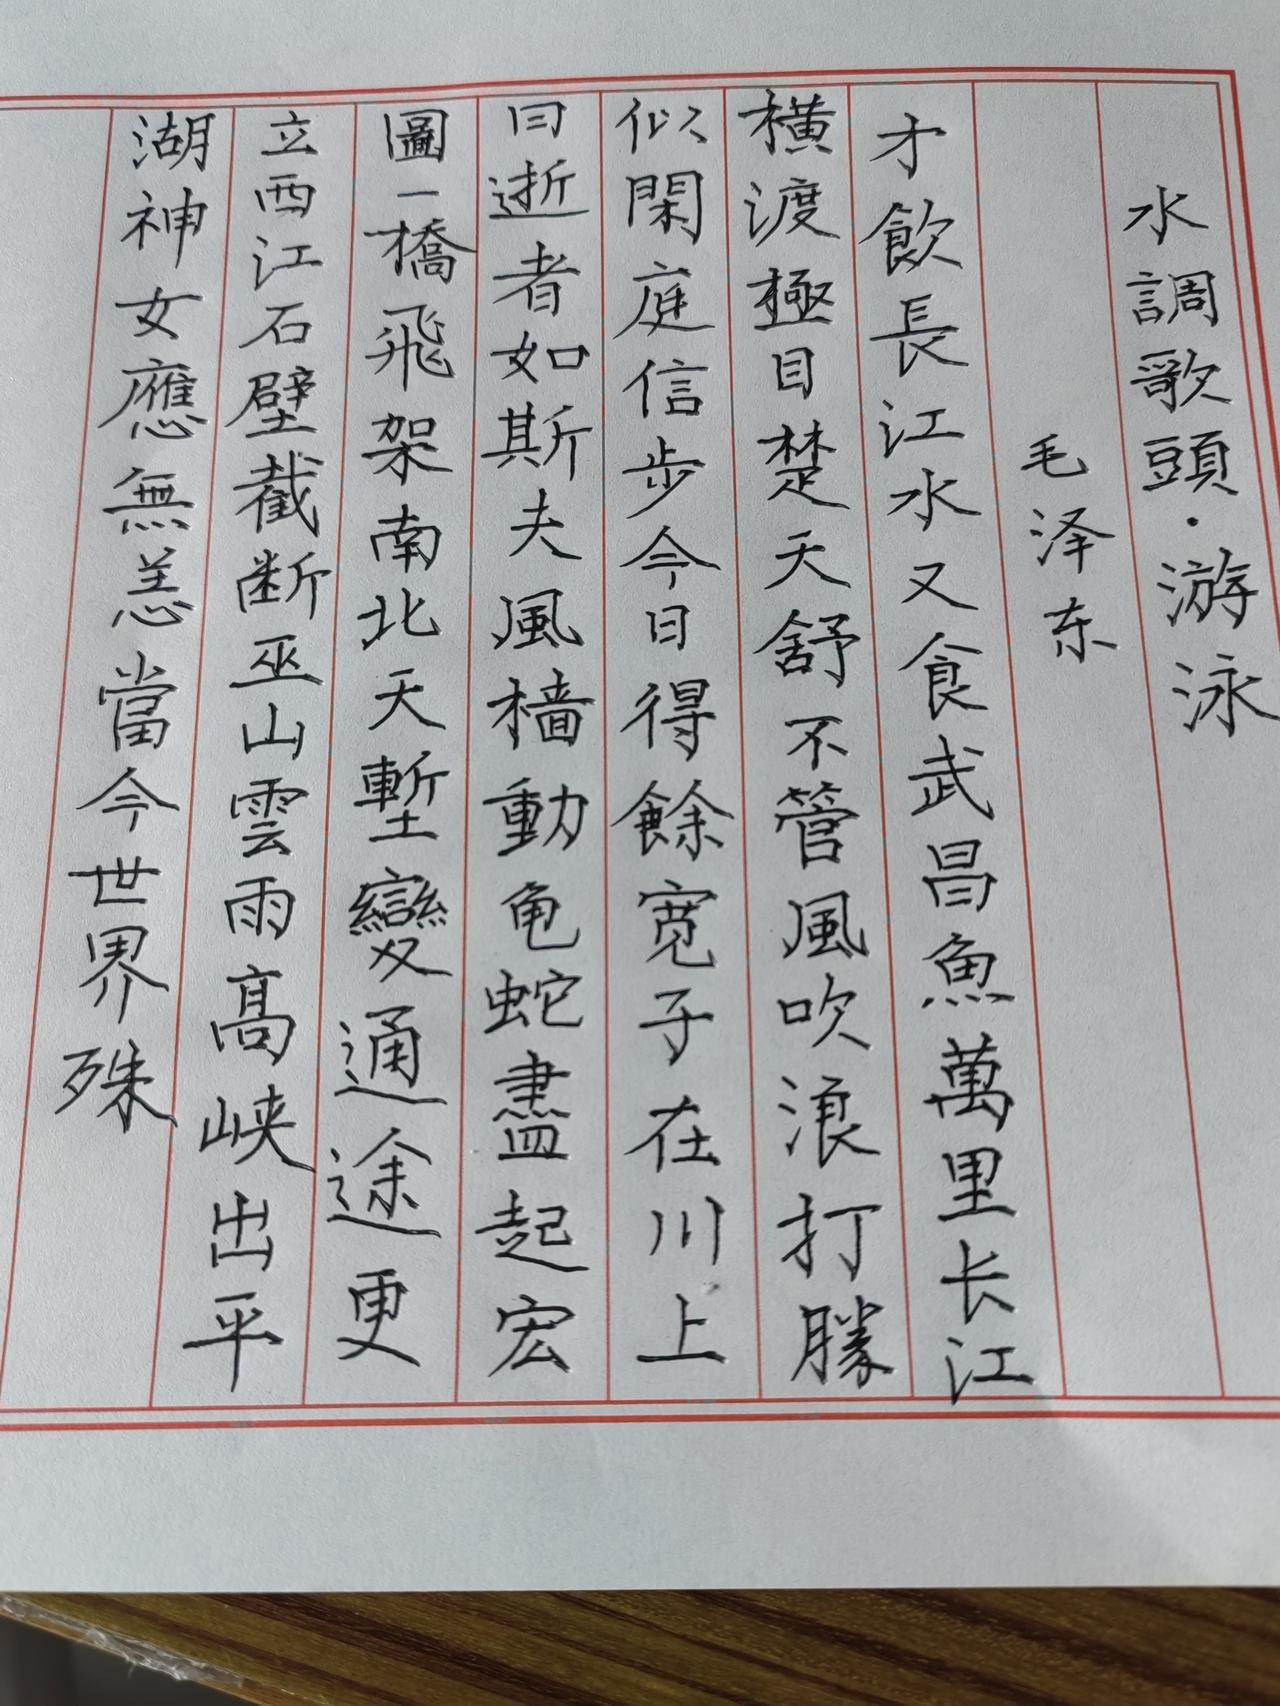 水調歌頭·游泳
毛泽东
才飲長江水又食武昌魚萬里长江
橫渡極目楚天舒不管風吹浪打勝
似閑庭信步今日得餘宽子在川上
曰逝者如斯夫風檣動龟蛇盡起宏
圖一橋飛架南北天塹變通途更
立西江石壁截断巫山雲雨高峡出平
湖神女應無恙當今世界殊